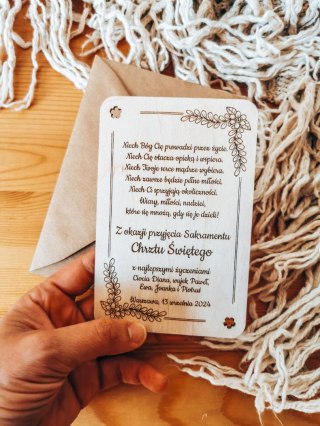 Niech Bóg Cię prowadzi przez życie.
Niech Cię otacza opieką i wspiera.
Niech Twoje serce mądrze wybiera.
Niech zawsze będzie pełne miłości.
Niech Ci sprzyjają okoliczności.
Wiary, miłości, nadziei,
które się mnożą, gdy się je dzieli!
Z okazji przyjęcia Sakramentu
Chrztu Świętego
z najlepszymi życzeniami
Ciocia Diana, wujek Paweł,
Ewa, Joanka i Piotruś
Warszawa, 13 września 2024